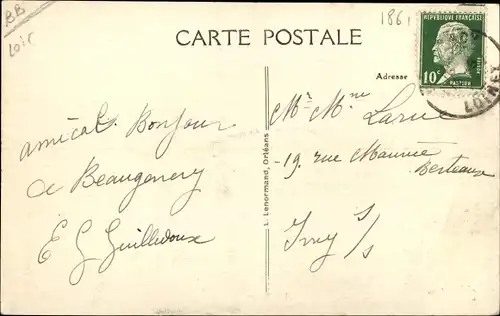 BB
Loir
1861
CARTE POSTALE
RÉPUBLIQUE FRANÇAISE
10c
POSTES
PASTEUR
LOIRET
Adresse
amical Bonjour
de Beaugency
E G Guilledoux
L. Lenormand, Orléans
Mr Mme Larue
19. rue Maurice
Berteaux
Ivry s/s